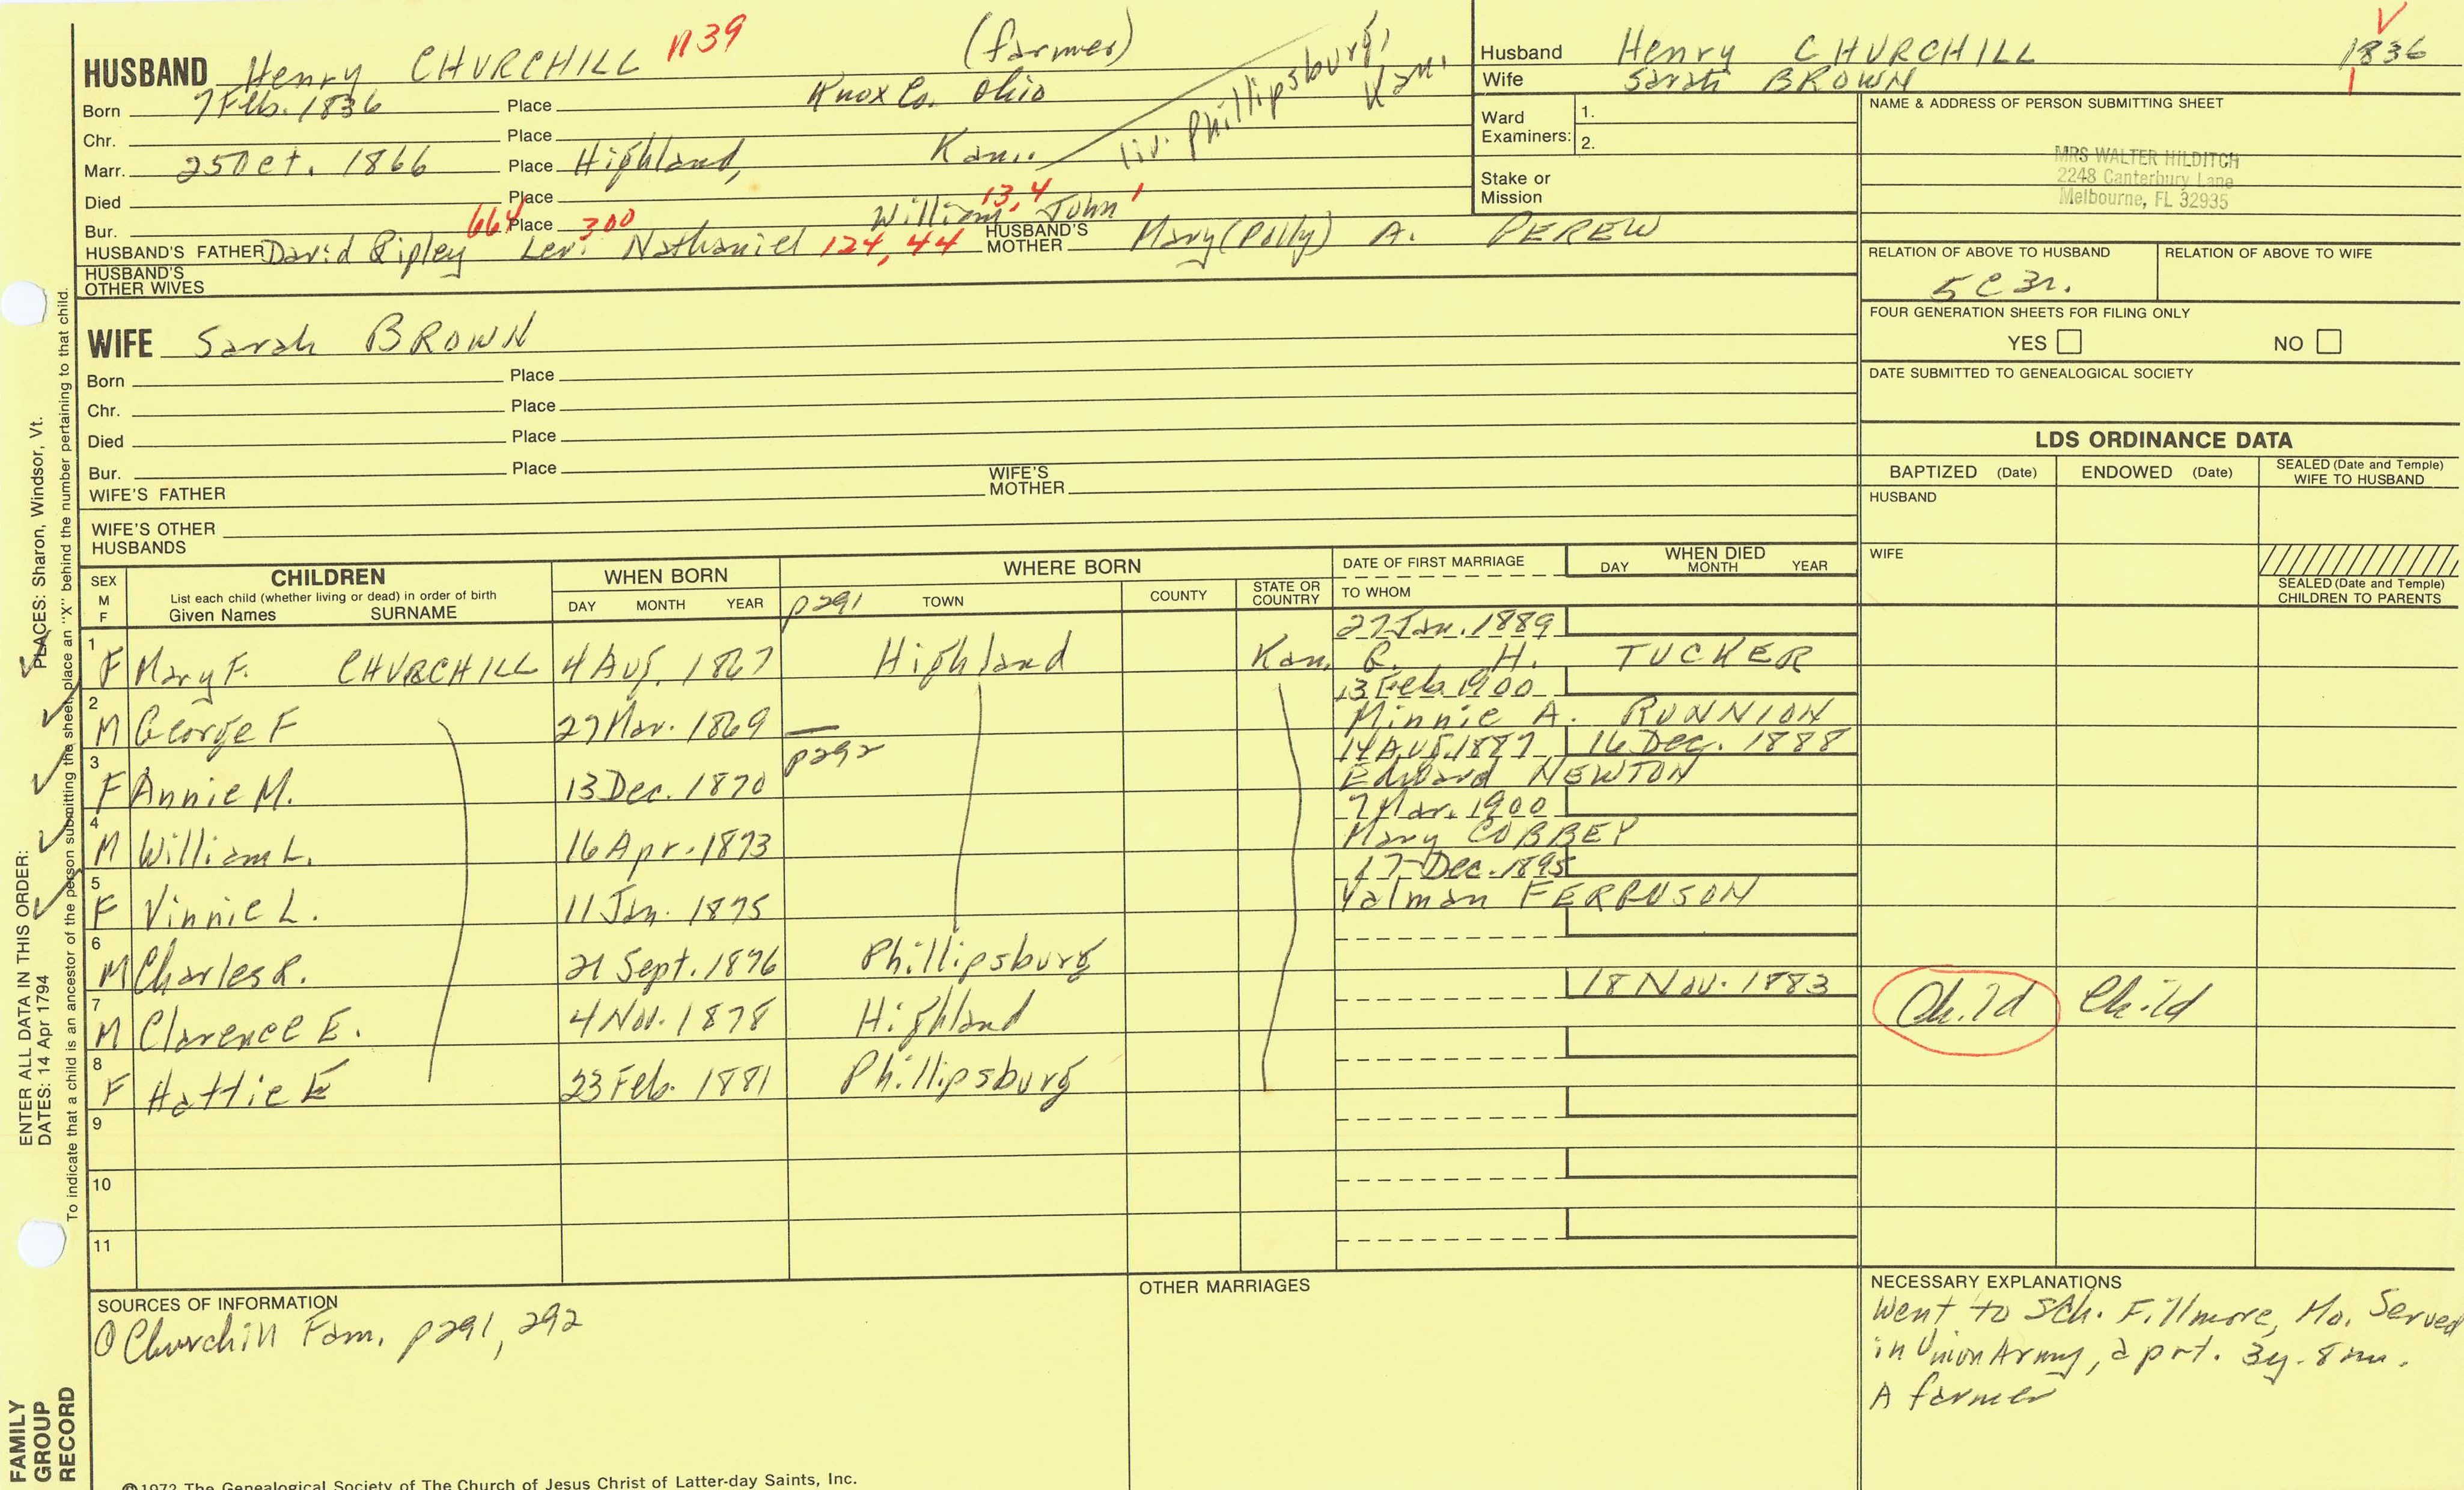 HUSBAND Henry CHURCHILL n39 (farmer)
Born 7 Feb. 1836 Place Knox Co. Ohio
Chr. Place
Marr. 25 Oct. 1866 Place Highland, Kan. liv. Phillipsburg, Kan.
Died Place
Bur. Place
664 300 William 13,4 John 1
HUSBAND'S FATHER David Ripley Levi Nathaniel 124, 44 HUSBAND'S MOTHER Mary (Polly) A. PEREW
HUSBAND'S OTHER WIVES
Husband Henry CHURCHILL 1836
Wife Sarah BROWN 1
Ward Examiners: 1.
2.
Stake or Mission
NAME & ADDRESS OF PERSON SUBMITTING SHEET
MRS WALTER HILDITCH
2248 Canterbury Lane
Melbourne, FL 32935
RELATION OF ABOVE TO HUSBAND RELATION OF ABOVE TO WIFE
5C3r.
FOUR GENERATION SHEETS FOR FILING ONLY
YES NO
DATE SUBMITTED TO GENEALOGICAL SOCIETY
WIFE Sarah BROWN
Born Place
Chr. Place
Died Place
Bur. Place
WIFE'S FATHER WIFE'S MOTHER
WIFE'S OTHER HUSBANDS
LDS ORDINANCE DATA
BAPTIZED (Date) ENDOWED (Date) SEALED (Date and Temple) WIFE TO HUSBAND
HUSBAND
WIFE
SEALED (Date and Temple) CHILDREN TO PARENTS
SEX M F
CHILDREN
List each child (whether living or dead) in order of birth
Given Names SURNAME
WHEN BORN
DAY MONTH YEAR
WHERE BORN
p291 TOWN COUNTY STATE OR COUNTRY
DATE OF FIRST MARRIAGE
TO WHOM
WHEN DIED
DAY MONTH YEAR
27 Jan. 1889
1 F Mary F. CHURCHILL 4 Aug. 1867 Highland Kan. R. H. TUCKER
13 Feb. 1900
2 M George F 27 Mar. 1869 Minnie A. RUNNION
p292 14 Aug. 1887 16 Dec. 1888
3 F Annie M. 13 Dec. 1870 Edward NEWTON
7 Mar. 1900
4 M William L. 16 Apr. 1873 Mary COBBEY
17 Dec. 1895
5 F Vinnie L. 11 Jan. 1875 Valman FERGUSON
6 M Charles R. 21 Sept. 1876 Phillipsburg
18 Nov. 1883
7 M Clarence E. 4 Nov. 1878 Highland Child Child
8 F Hattie E 23 Feb. 1881 Phillipsburg
9
10
11
SOURCES OF INFORMATION
① Churchill Fam. p291, 292
OTHER MARRIAGES
NECESSARY EXPLANATIONS
Went to Sch. Fillmore, Mo. Served
in Union Army, a prt. 3y. 8 mo.
A farmer
©1972 The Genealogical Society of The Church of Jesus Christ of Latter-day Saints, Inc.
FAMILY GROUP RECORD
ENTER ALL DATA IN THIS ORDER:
DATES: 14 Apr 1794
PLACES: Sharon, Windsor, Vt.
To indicate that a child is an ancestor of the person submitting the sheet, place an "X" behind the number pertaining to that child.